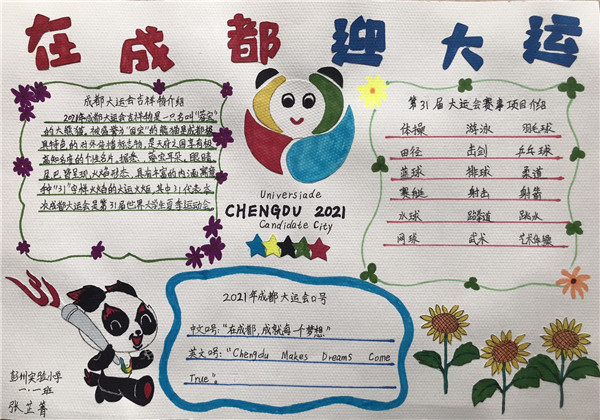 在成都迎大运
成都大运会吉祥物介绍
2021年成都大运会吉祥物是一只名叫“蓉宝”
的大熊猫,被盛誉为“国宝”的熊猫是成都极
具特色的对外传播标志物,是天府之国享有极
高知名度的个性名片,蓉宝耳朵、眼睛
尾巴皆呈现火焰形态,具有丰富的内涵寓意
“31”字样火焰的大运火炬,其中31代表本
次成都大运会是第31届世界大学生夏季运动会
Universiade
CHENGDU 2021
Candidate City
第31届大运会赛事项目介绍
体操 游泳 羽毛球
田径 击剑 乒乓球
篮球 排球 柔道
赛艇 射击 射箭
水球 跆拳道 跳水
网球 武术 艺术体操
2021年成都大运会口号
中文口号:“在成都,成就每一个梦想”
英文口号:“Chengdu Makes Dreams Come
True”。
彭州实验小学
一.一班
张芷菁